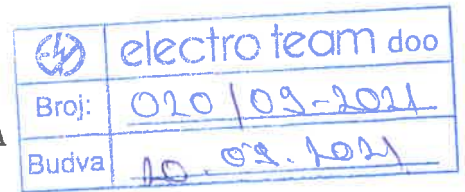 electro team doo
Broj: 020/09-2021
Budva 20.09.2021
A